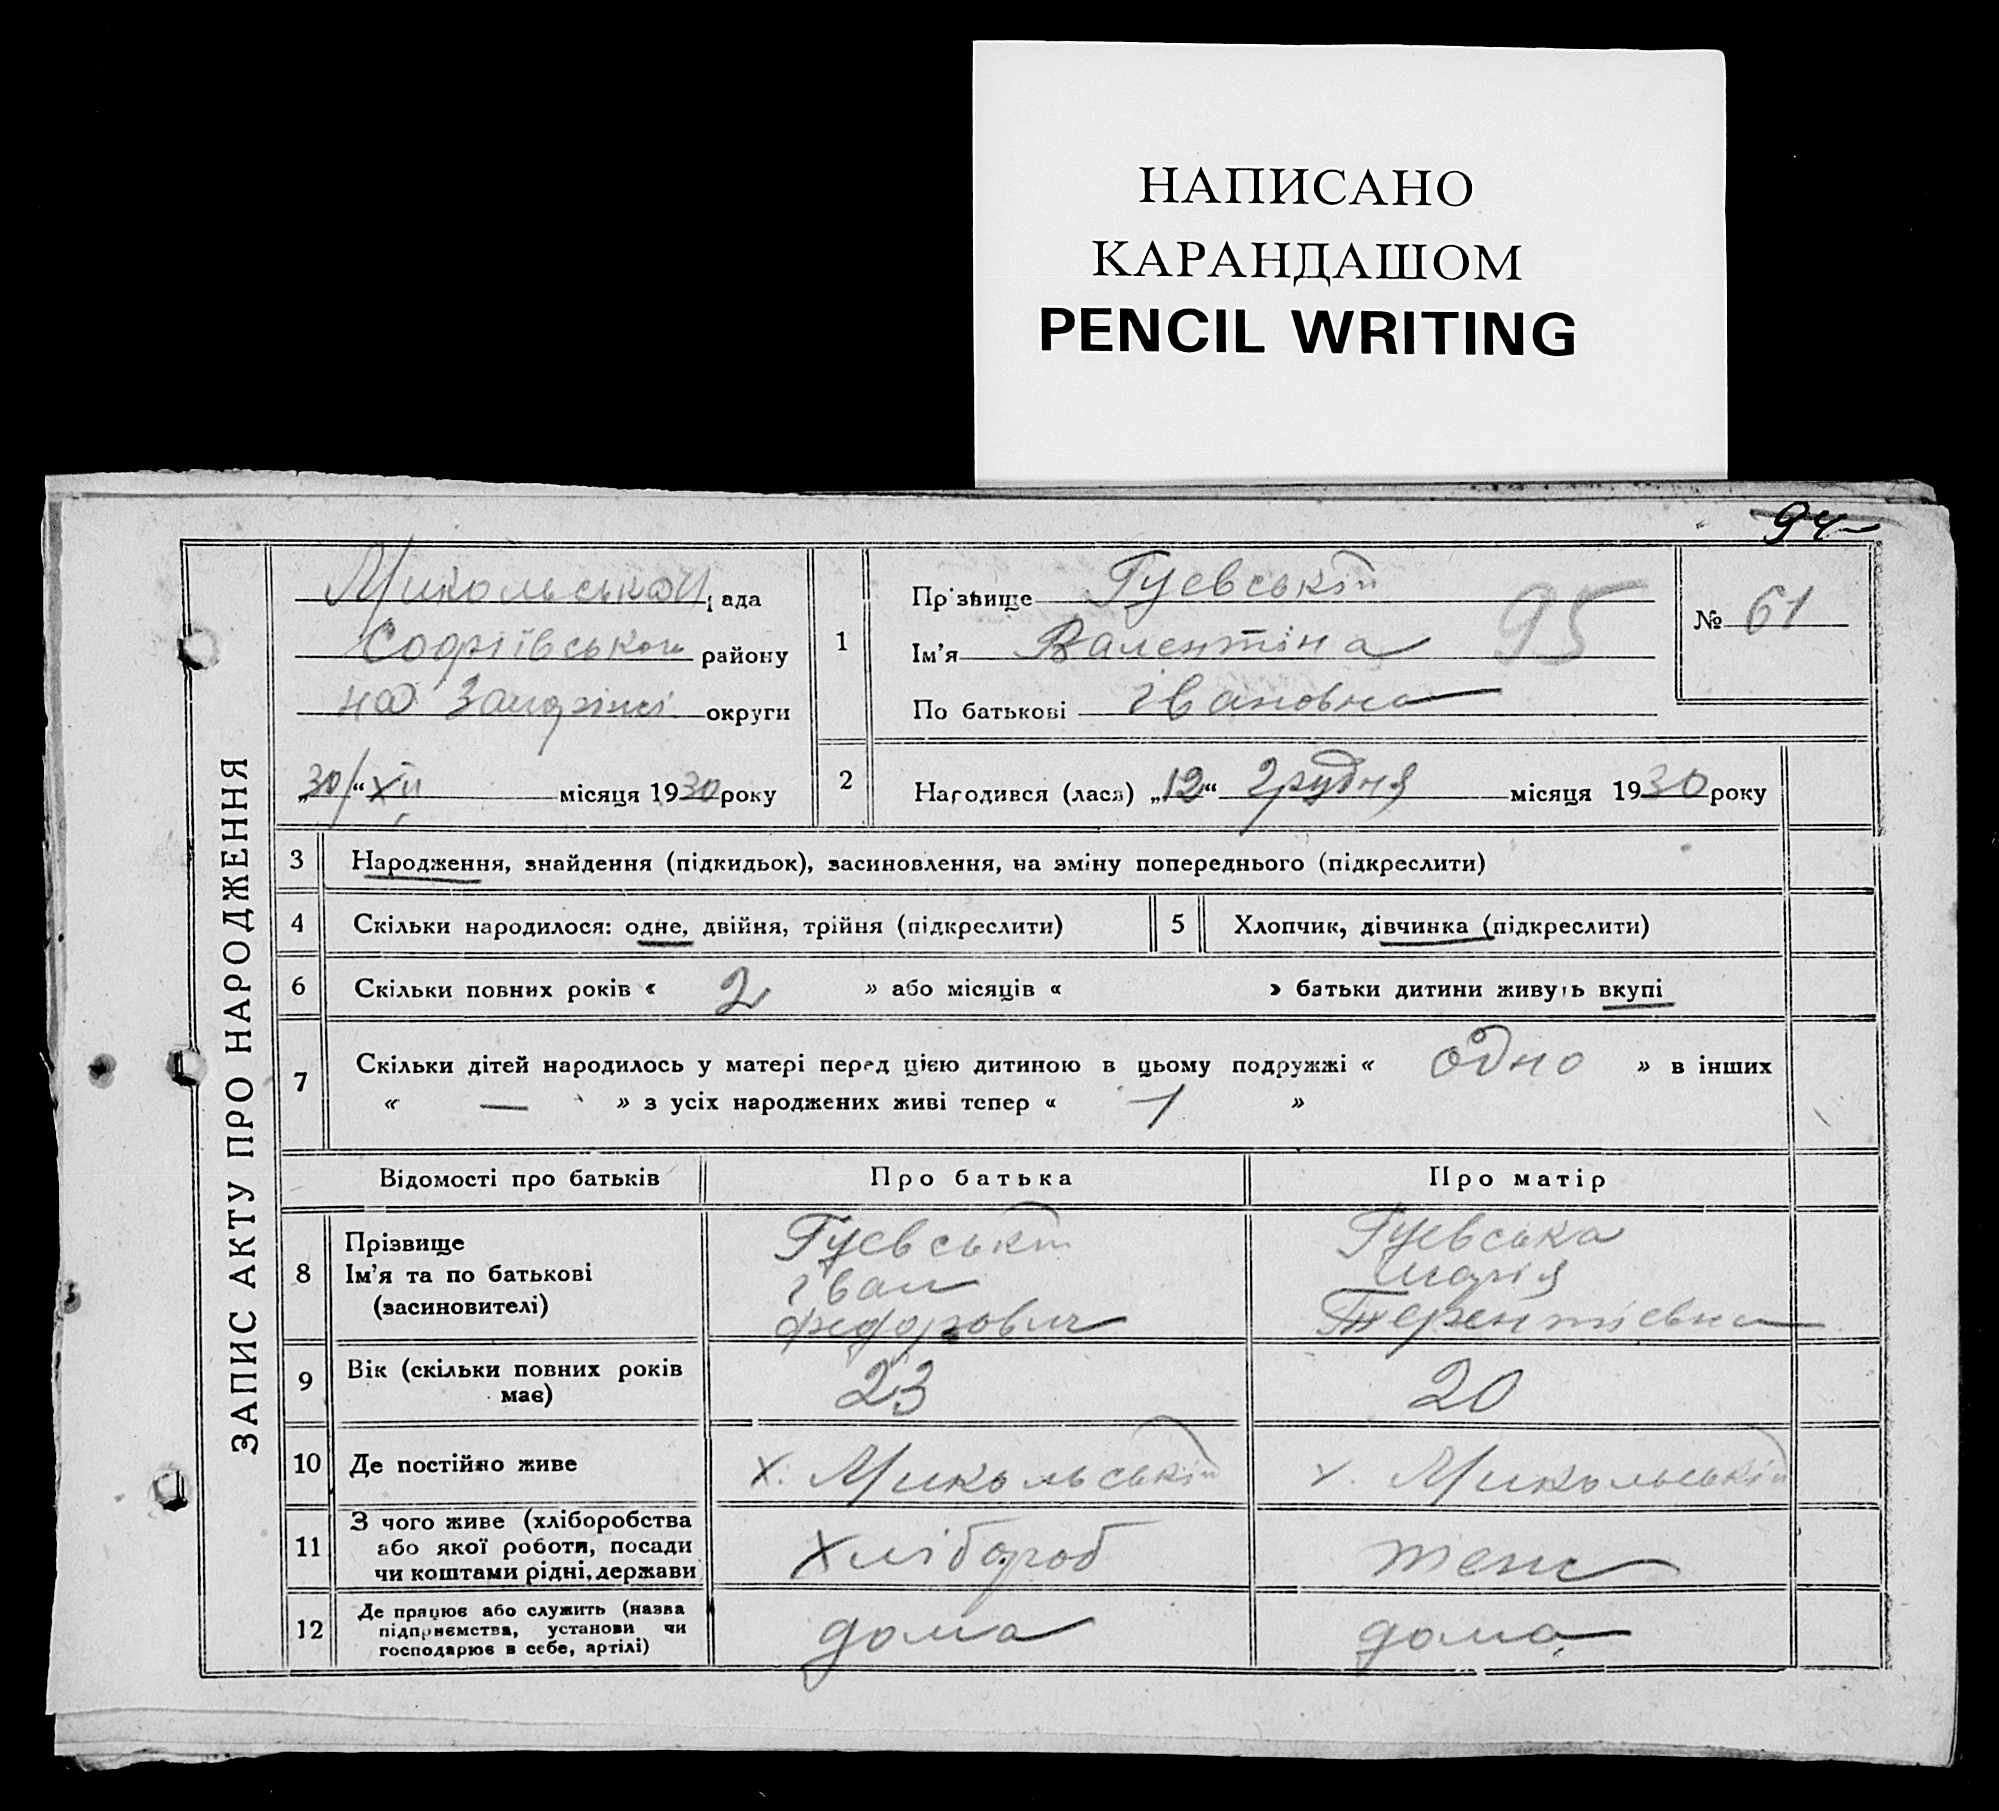 НАПИСАНО
КАРАНДАШОМ
PENCIL WRITING
94
ЗАПИС АКТУ ПРО НАРОДЖЕННЯ
Микольської рада
Софіївського району
округи
„30/“ XII місяця 1930 року
1
Прізвище Гуєвській
95
Ім'я Валентіна
По батькові івановна
№ 61
2
Народився (лася) „12“ Грудня місяця 1930 року
3 Народження, знайдення (підкидьок), засиновлення, на зміну попереднього (підкреслити)
4 Скільки народилося: одне, двійня, трійня (підкреслити) 5 Хлопчик, дівчинка (підкреслити)
6 Скільки повних років « 2 » або місяців « » батьки дитини живуть вкупі
7 Скільки дітей народилось у матері перед цією дитиною в цьому подружжі « одно » в інших
« — » з усіх народжених живі тепер « 1 »
Відомості про батьків Про батька Про матір
8 Прізвище
Ім'я та по батькові
(засиновителі)
Гуєвській
іван
федорович
Гуєвська
Марія
Терентієвна
9 Вік (скільки повних років
має)
23
20
10 Де постійно живе х. Микольській х. Микольській
11 З чого живе (хліборобства
або якої роботи, посади
чи коштами рідні, держави
Хлібороб
теж
12 Де працює або служить (назва
підприємства, установи чи
господарює в себе, артілі)
дома
дома